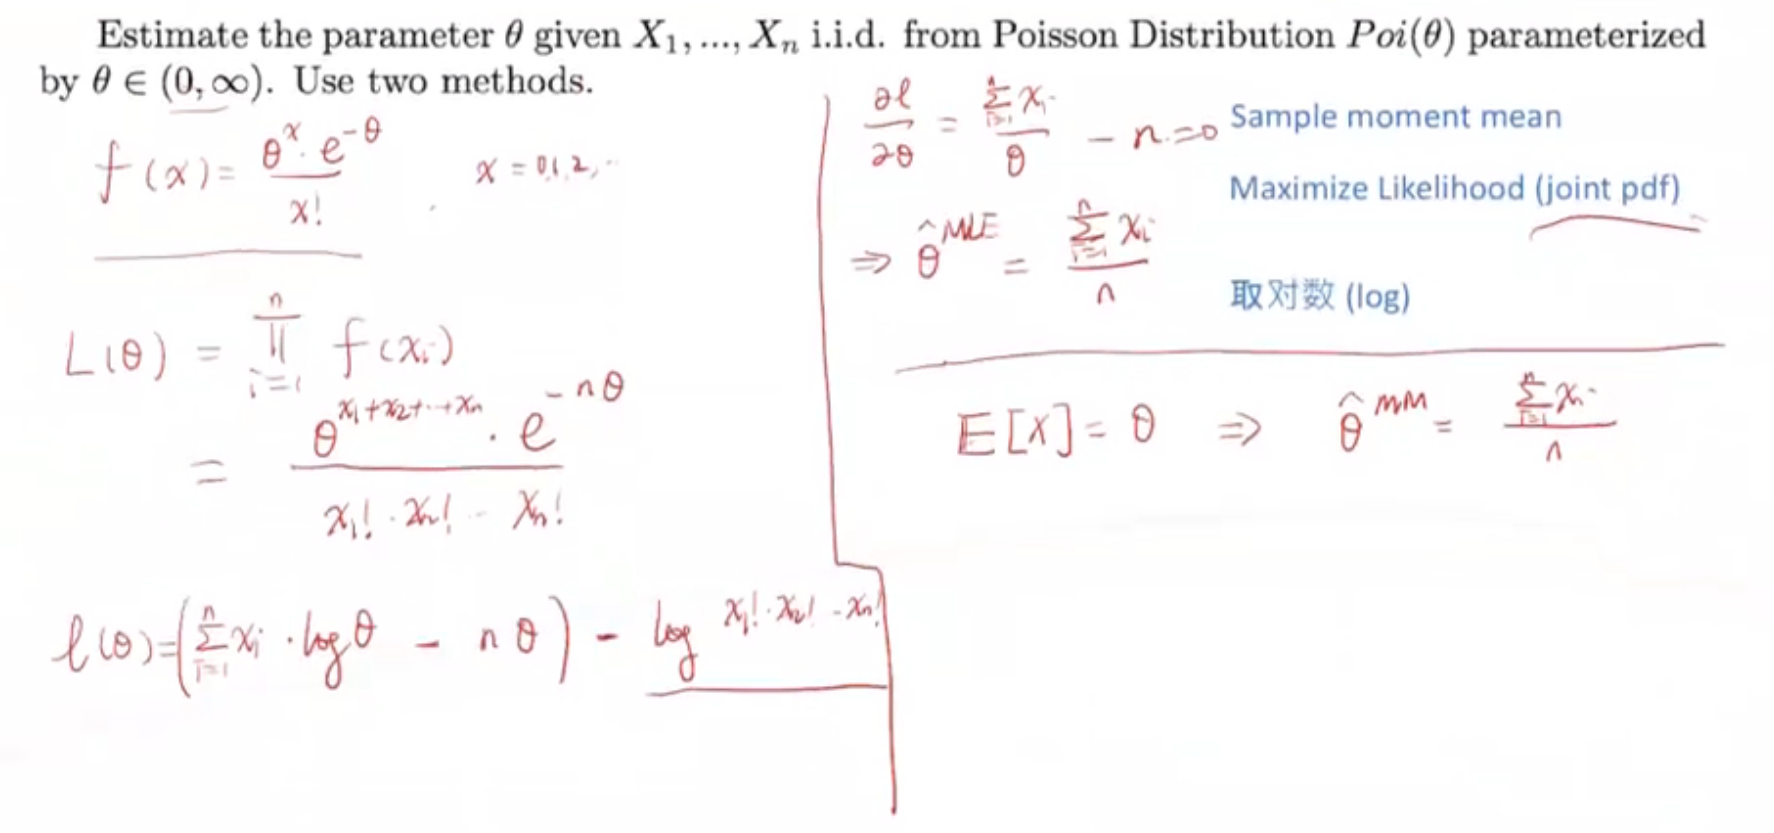 Estimate the parameter θ given X₁, ..., Xₙ i.i.d. from Poisson Distribution Poi(θ) parameterized
by θ ∈ (0, ∞). Use two methods.
f(x) = θ^x · e^{-θ} / x! , x = 0,1,2,..
L(θ) = ∏_{i=1}^{n} f(xᵢ)
= θ^{x₁+x₂+···+xₙ} · e^{-nθ} / x₁! · x₂! ·· xₙ!
ℓ(θ) = (∑_{i=1}^{n} xᵢ · log θ − nθ) − log x₁! · x₂! ·· xₙ!
∂ℓ/∂θ = ∑_{i=1}^{n} xᵢ / θ − n = 0
⇒ θ̂^{MLE} = ∑_{i=1}^{n} xᵢ / n
Sample moment mean
Maximize Likelihood (joint pdf)
取对数 (log)
E[X] = θ ⇒ θ̂^{MM} = ∑_{i=1}^{n} xᵢ / n